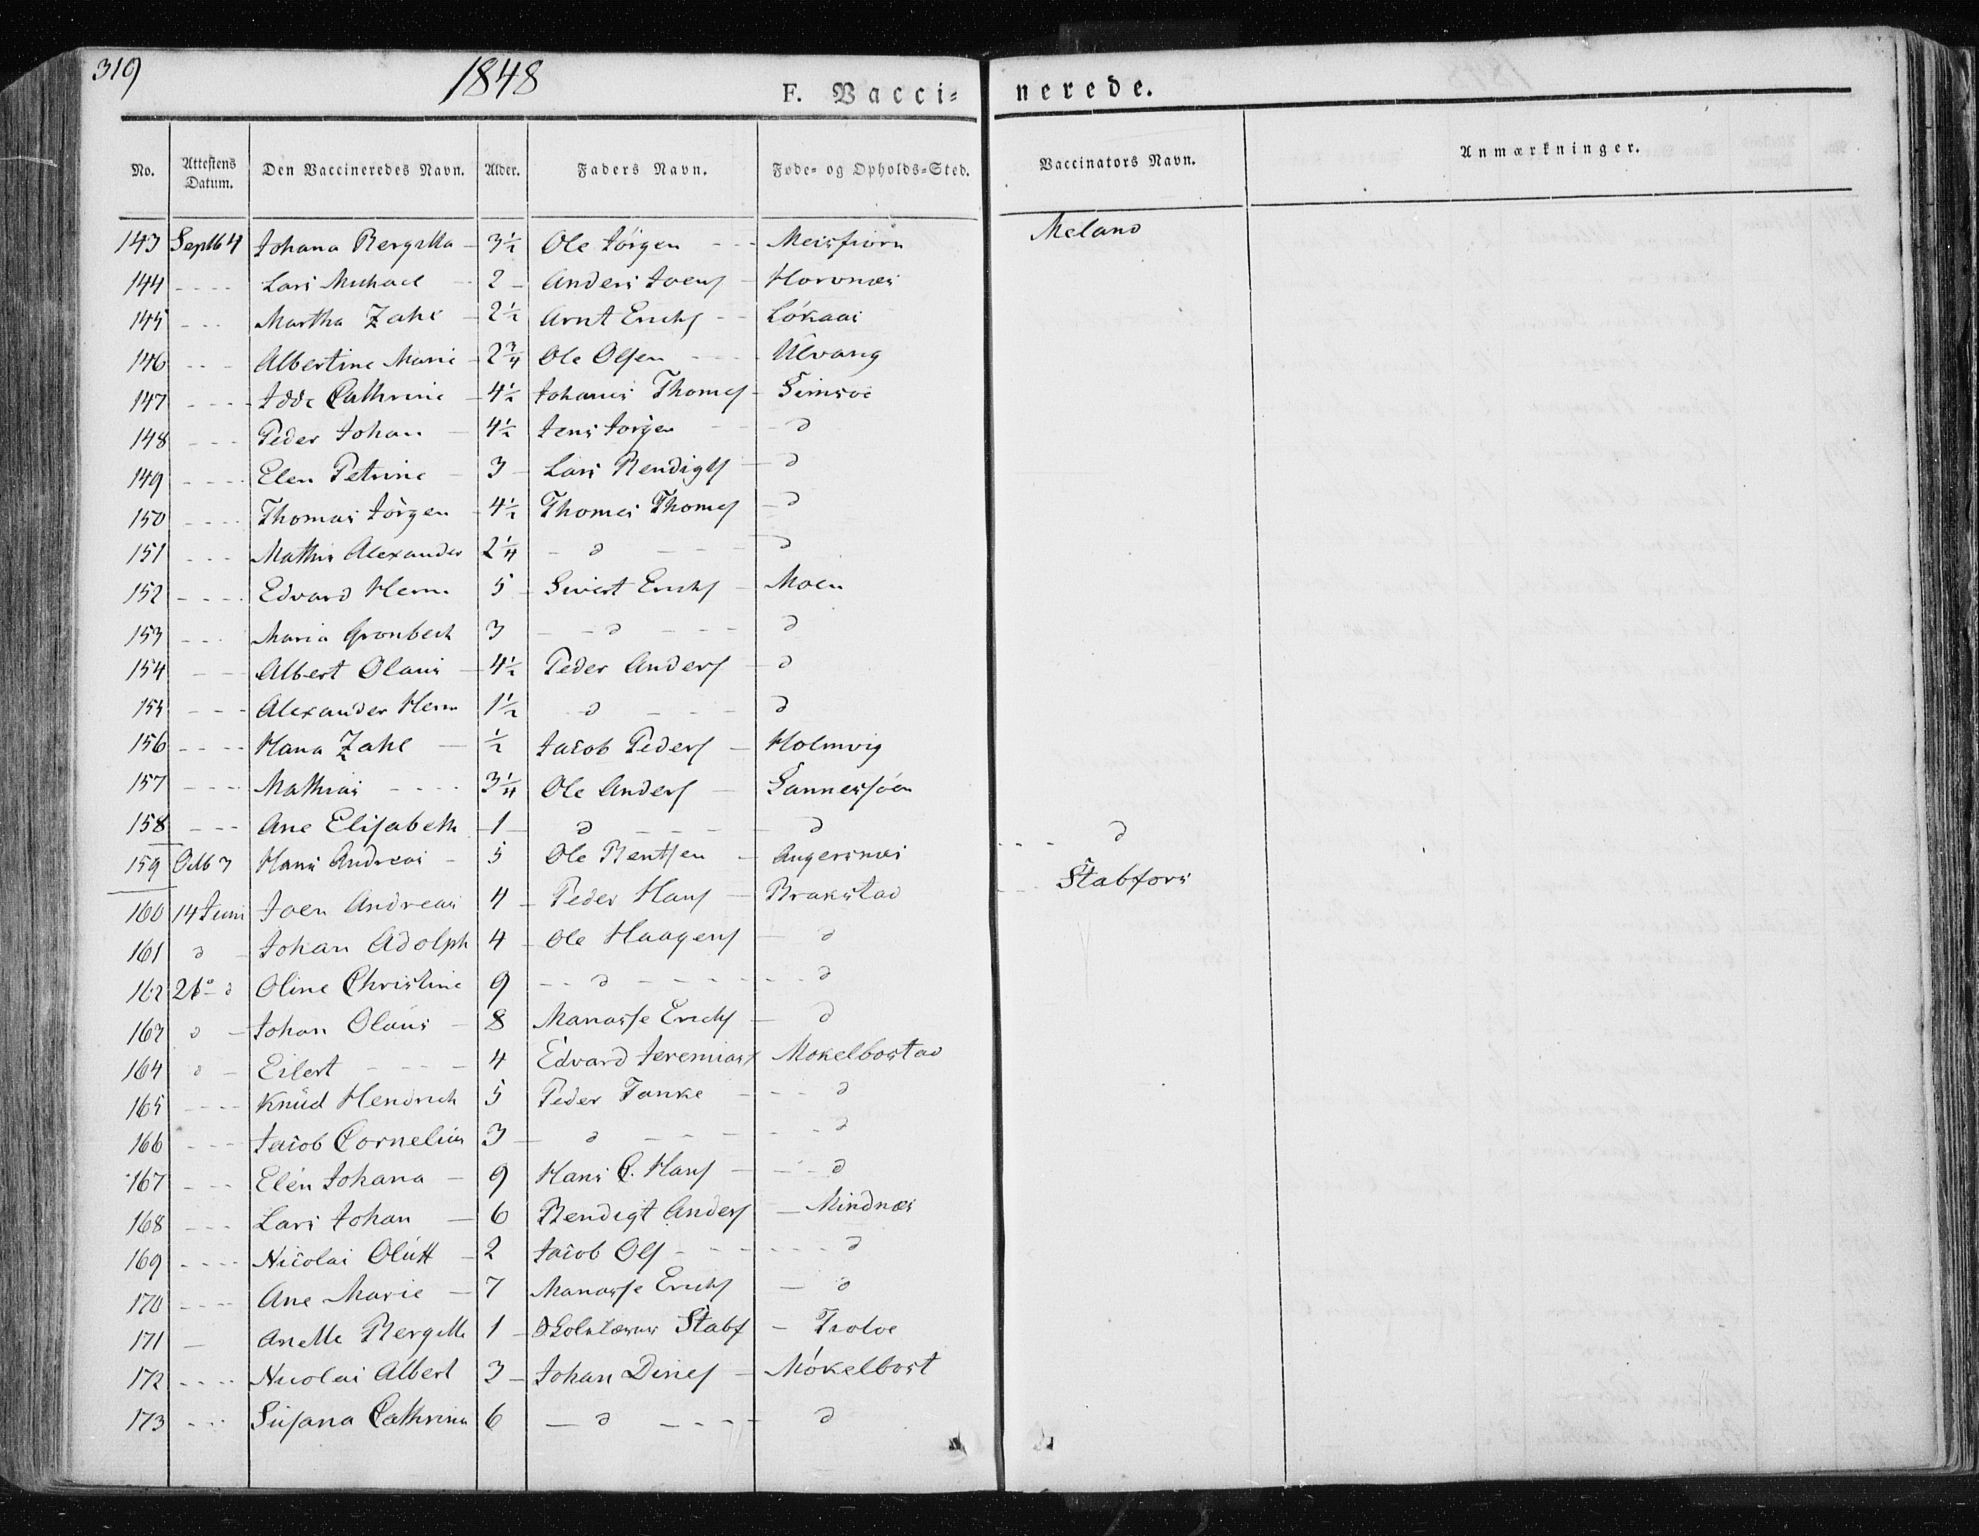 319
1848
F. Vacci- nerede.
No. Attestens Datum. Den Vaccineredes Navn. Alder. Faders Navn. Føde- og Opholds-Sted. Vaccinators Navn. Anmærkninger.
143 Septb 4 Johana Bergitta - 3½ Ole Jörgen - - - Meisfiorn Meland
144 - - - - Lars Michael - 2 - Anders Joens - Horvnæs
145 - - - Martha Zahl - 2½ Arnt Erichs - - Lökaas
146 - - - Albertine Marie - 2¾ Ole Olsen - - - - Ulvang
147 - - - - Idde Cathrine - 4½ Johanes Thomes -
148 - - - Peder Johan - 4½ Jens Jörgen - - d
149 - - - - Elen Petrine - 3 - Lars Bendigts - d
150 - - - - Thomas Jörgen - 4½ Thomes Thomes - d
151 - - - Mathis Alexander 2¼ - d - - - d
152 - - - - Edvard Herm 5 - Sivert Erichs - Moen
153 - - - Maria Gronbech 3 - - d - - - d
154 - - Albert Olaus - 4½ Peder Anders - d
155 - - - Alexander Herm 1½ d - - - d
156 - - - - Hana Zahl - ½ Jacob Peders - Holmvig
157 - - - - Mathias - - - - 3¼ Ole Anders - Sannessöen
158 - - - Ane Elisabeth - 1 - d - - - - d - - - d
159 Octb 7 Hans Andreas - 5 Ole Bentsen - Angersnæs
160 14 Juni Joen Andreas 4 - Peder Hans - Brakstad - - - Stabfors
161 d - Johan Adolph 4 - Ole Haagens - d
162 21° - d Oline Christine 9 - - d - - - - - - d
163 d - Johan Olaus - 8 Manasse Erichs - d
164 d - Eilert - - - - 4 Edvard Jeremias Mokelbostad
165 - - - - Knud Hendrich 5 Peder Tanke - - - d
166 - - - Jacob Cornelius 3 - d - - - - - - d
167 - - - Elen Johana - 9 Hans C. Hans - - - d
168 - - - Lars Johan - 6 Bendigt Anders - Mindnæs
169 - - - - Nicolai Olutt - 2 Jacob Ols - - - - - - d
170 - - - - Ane Marie - 7 Manasse Erichs - d
171 - Anette Bergitte 1 - Stabf -
172 - - - - Nicolai Albert 3 - Johan Dines - Mökelbost
173 - - - Susana Cathrina 6 - d - - - - d